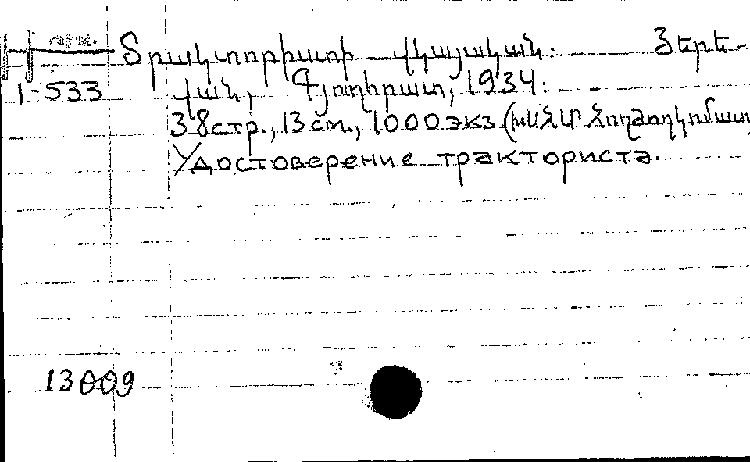 Տրակտորիստի վկայական. Յերե-
I-533 վան, Գյուղհրատ, 1934:
38стр., 13см., 1000экз. (ԽՍՀՄ Հողժողկոմատ
Удостоверение тракториста.
13009